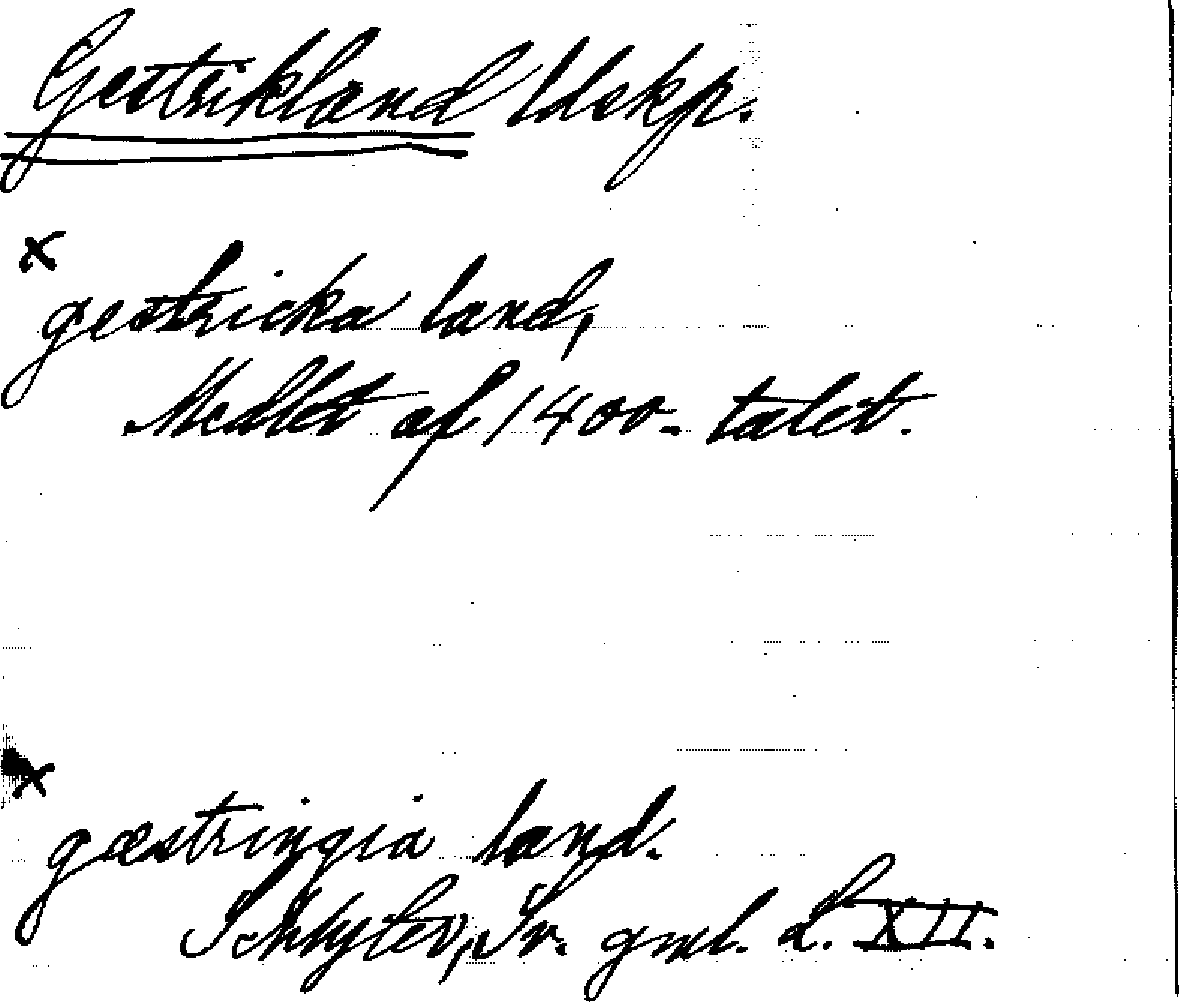 Gestrikland ldskp.
x
gestricka land,
Medlet af 1400-talet.
x
gæstringia land.
Schlyter, Sv. gml. L. XII.